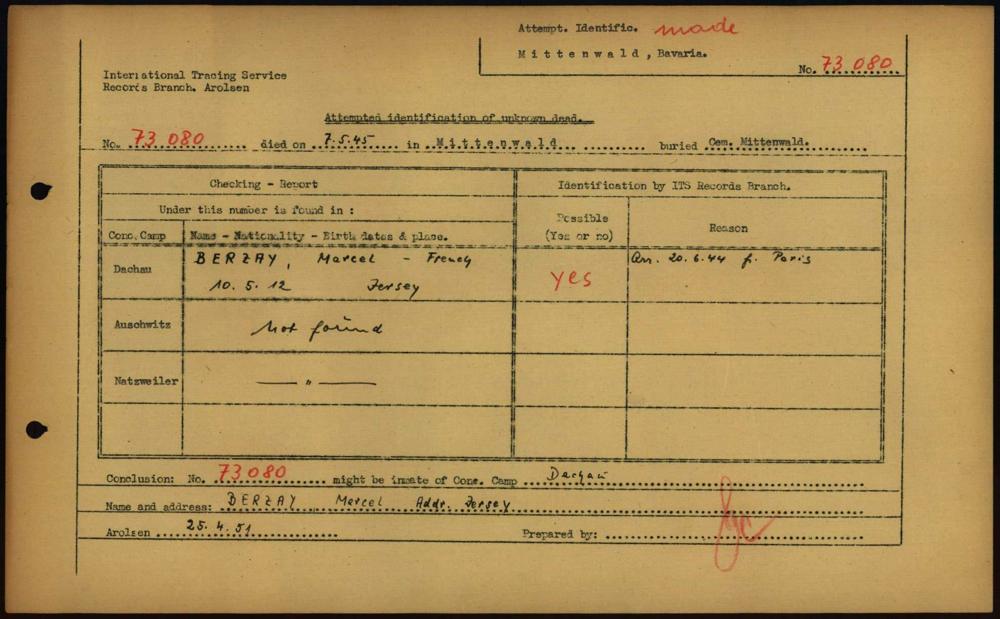 Attempt. Identific. made
Mittenwald, Bavaria.
No. 73 080
International Tracing Service
Records Branch. Arolsen
Attempted identification of unknown dead.
No. 73 080 died on 7.5.45 in Mittenwald buried Cem. Mittenwald.
Checking - Report
Identification by ITS Records Branch.
Under this number is found in :
Possible
(Yes or no)
Reason
Conc. Camp
Name - Nationality - Birth dates & place.
Dachau
BERZAY, Marcel - French
10. 5. 12 Jersey
yes
Arr. 20.6.44 f. Paris
Auschwitz
Not found
Natzweiler
— " —
Conclusion: No. 73080 might be inmate of Conc. Camp Dachau
Name and address: BERZAY Marcel Addr. Jersey
Arolsen 25. 4. 51 Prepared by: